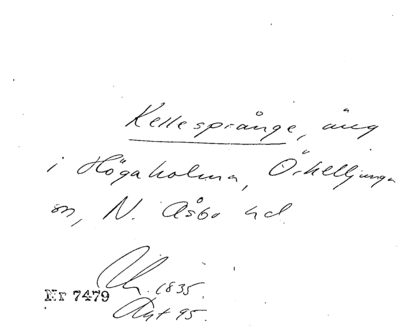 Kellesprånge, äng
i Högaholma, Örkelljunga
sn, N. Åsbo hd.
1835.
Nr 7479
Akt 95.